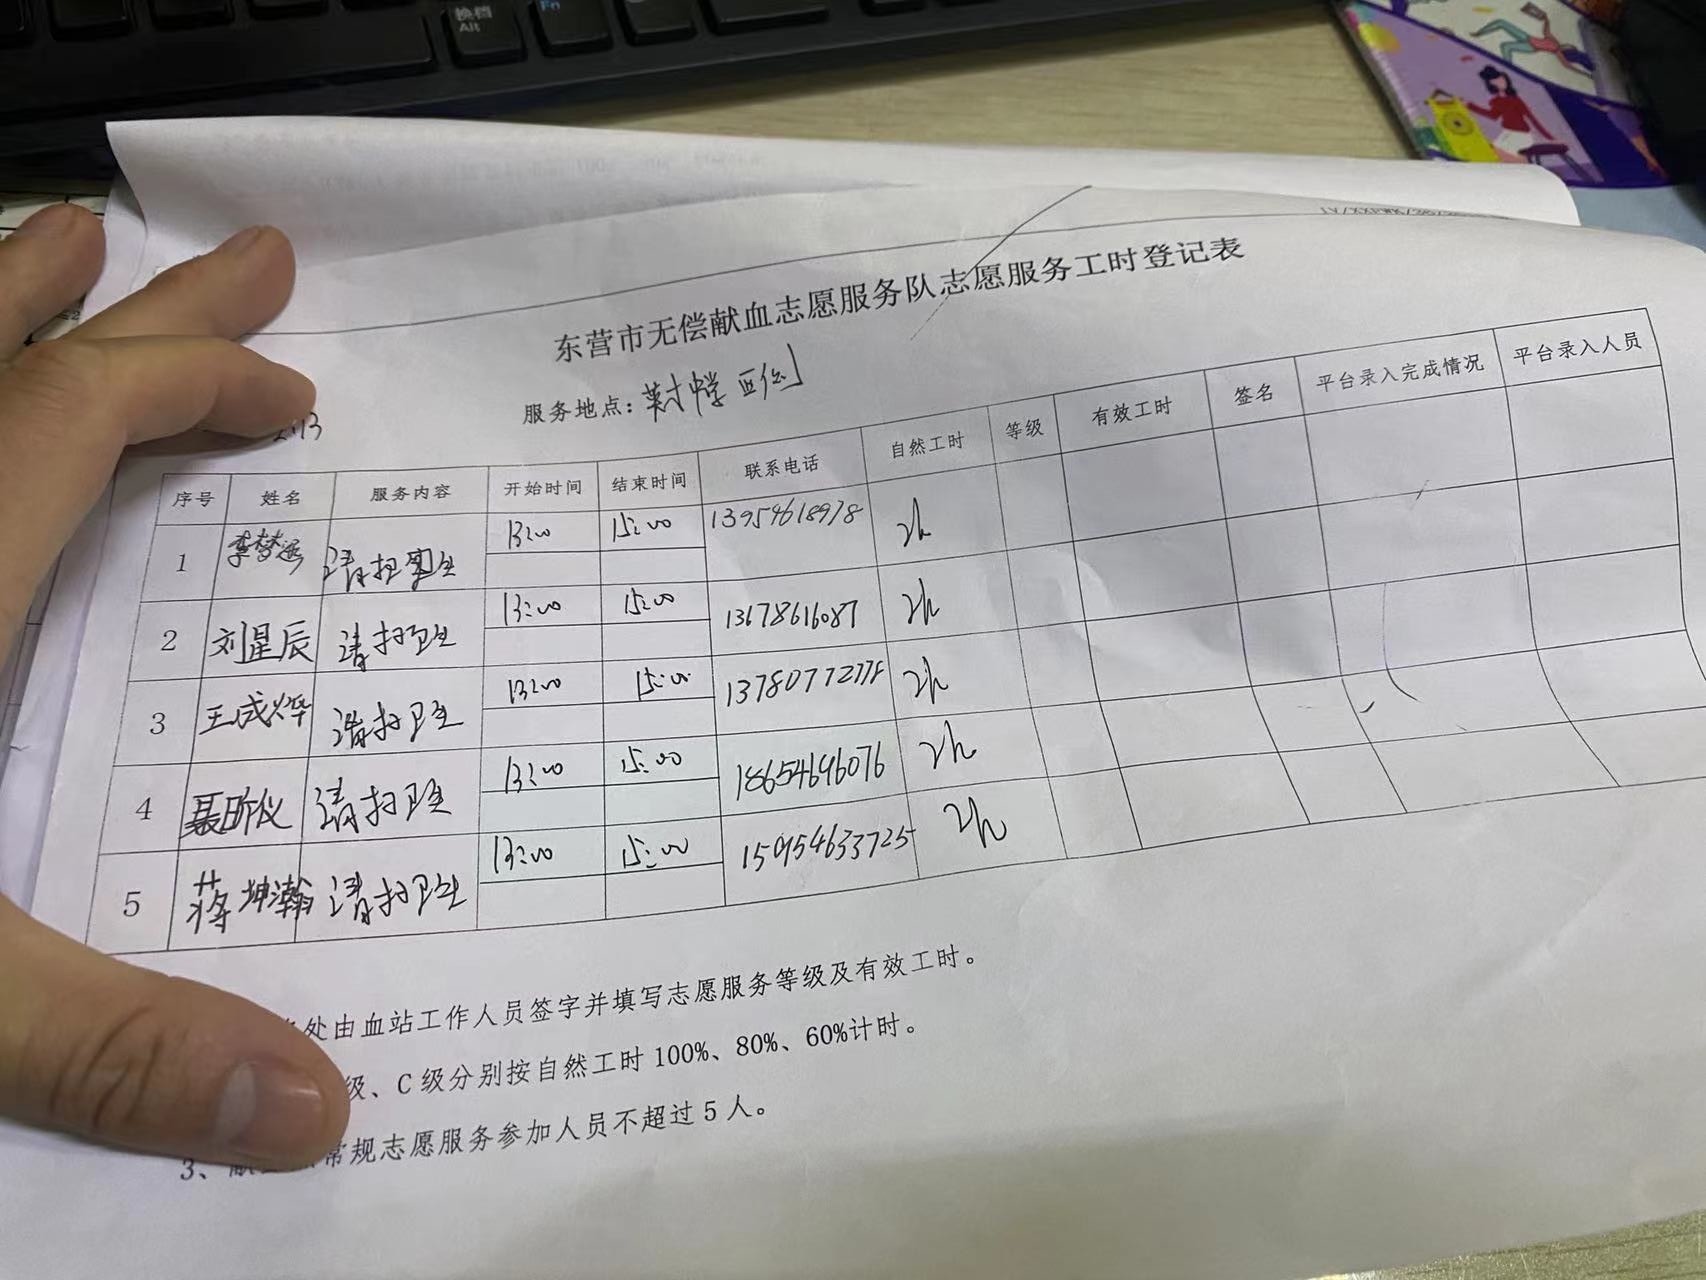 换档
Alt
Fn
东营市无偿献血志愿服务队志愿服务工时登记表
服务地点:
2.13
序号 姓名 服务内容 开始时间 结束时间 联系电话 自然工时 等级 有效工时 签名 平台录入完成情况 平台录入人员
1 李梦 清扫卫生 13:00 15:00 13954618978 2h
2 刘星辰 清扫卫生 13:00 15:00 13678616087 2h
3 王成烨 清扫卫生 13:00 15:00 2h
4 聂昕仪 清扫卫生 13:00 15:00 18654696076 2h
5 蒋坤瀚 清扫卫生 13:00 15:00 15095463725 2h
处由血站工作人员签字并填写志愿服务等级及有效工时。
级、C 级分别按自然工时 100%、80%、60%计时。
3、献 常规志愿服务参加人员不超过 5 人。